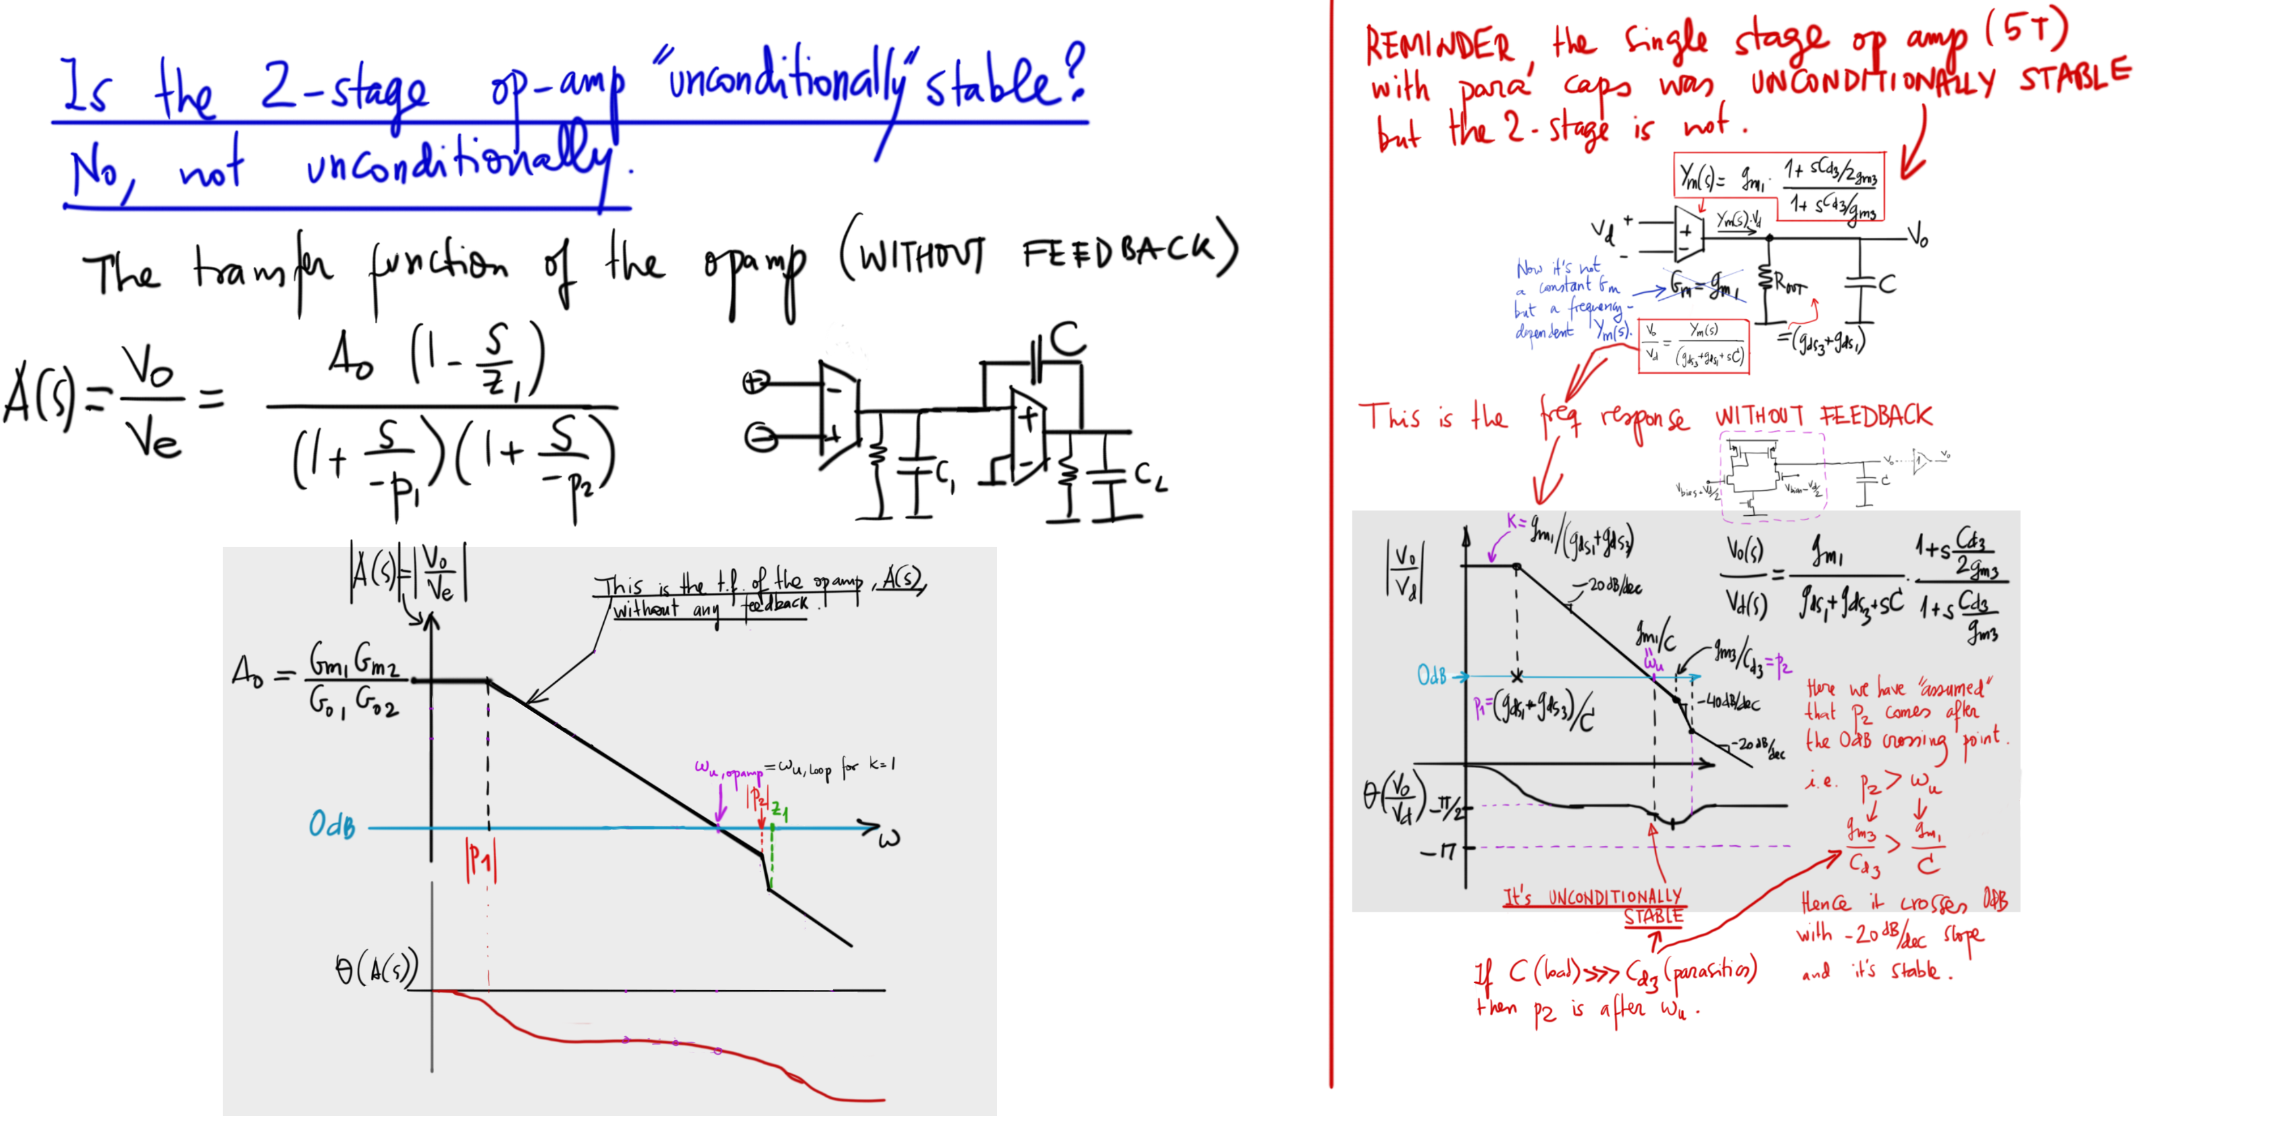 Is the 2-stage op-amp "unconditionally" stable?
No, not unconditionally.
The transfer function of the opamp (WITHOUT FEEDBACK)
A(s) = Vo/Ve = Ao (1 - s/z1) / (1 + s/-p1)(1 + s/-p2)
+
-
-
+
C
C1
+
-
CL
|A(s)| = |Vo/Ve|
This is the t.f. of the opamp, A(s),
without any feedback.
Ao = Gm1 Gm2 / Go1 Go2
ωu,opamp = ωu,loop for k=1
|p2|
z1
0dB
ω
|p1|
θ(A(s))
REMINDER, the single stage op amp (5T)
with para' caps was UNCONDITIONALLY STABLE
but the 2-stage is not.
Ym(s) = gm1 · (1 + sCd3/2gm3) / (1 + sCd3/gm3)
Vd
+
-
+
-
Ym(s)·Vd
Vo
Now it's not
a constant Gm
but a frequency-
dependent Ym(s).
Gm = gm1
ROUT
C
Vo/Vd = Ym(s) / (gds3+gds1+sC)
= (gds3+gds1)
This is the freq response WITHOUT FEEDBACK
Vbias+Vd/2
Vbias-Vd/2
C
Vo
1
Vo
|Vo/Vd|
K = gm1/(gds1+gds3)
-20dB/dec
Vo(s)/Vd(s) = gm1/(gds1+gds3+sC) · (1+s Cd3/2gm3) / (1+s Cd3/gm3)
gm1/C
=
ωu
gm3/Cd3 = p2
0dB
p1 = (gds1+gds3)/C
-40dB/dec
-20dB/dec
Here we have "assumed"
that p2 comes after
the 0dB crossing point.
i.e. p2 > ωu
gm3/Cd3 > gm1/C
θ(Vo/Vd)
-π/2
-π
It's UNCONDITIONALLY
STABLE
Hence it crosses 0dB
with -20dB/dec slope
and it's stable.
If C (load) >>>> Cd3 (parasitics)
then p2 is after ωu.